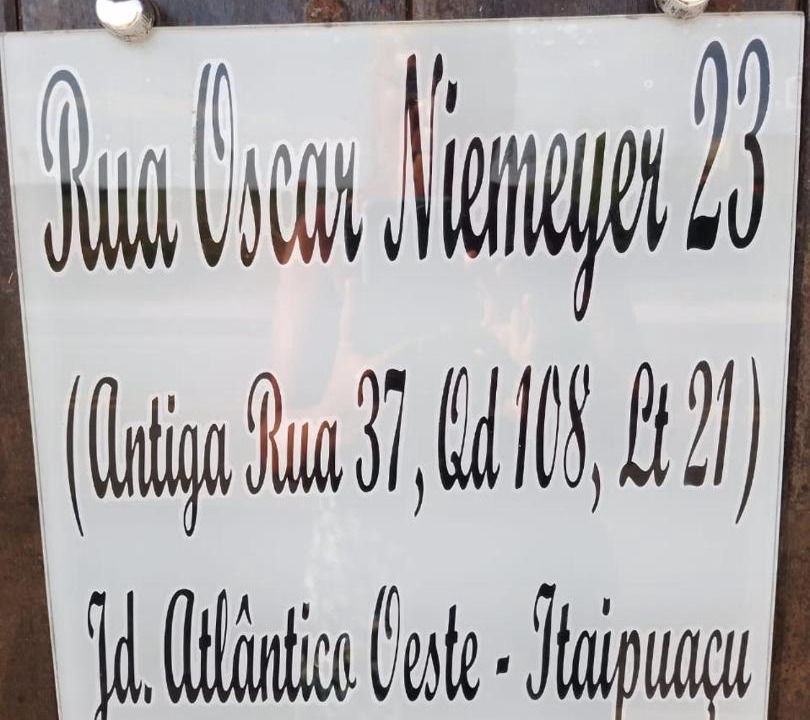 Rua Oscar Niemeyer 23
(Antiga Rua 37, Qd 108, Lt 21)
Jd. Atlântico Oeste - Itaipuaçu